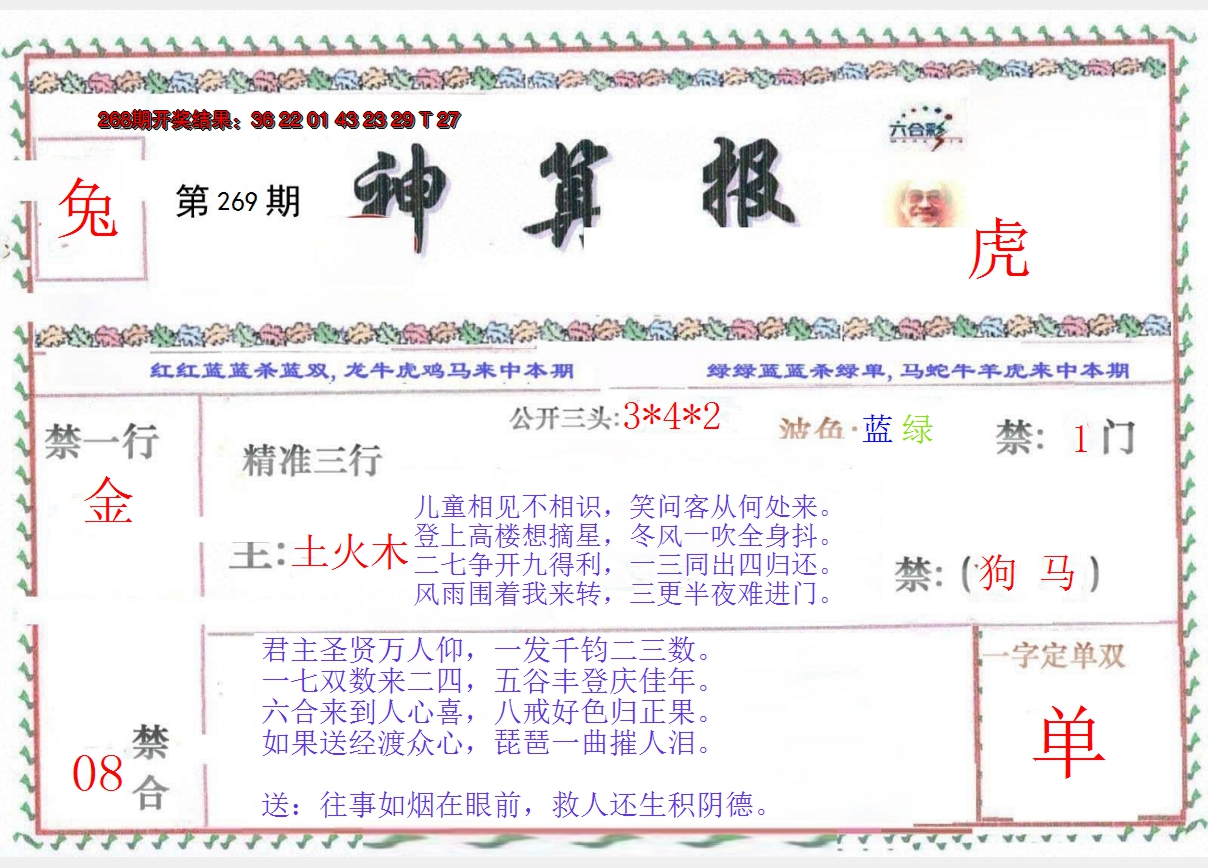 268期开奖结果：36 22 01 43 23 29 T 27
六合彩
兔
第 269 期
神算报
虎
红红蓝蓝杀蓝双,龙牛虎鸡马来中本期
绿绿蓝蓝杀绿单,马蛇牛羊虎来中本期
公开三头:3*4*2
波色:蓝 绿
禁: 1 门
禁一行
金
精准三行
主:土火木
儿童相见不相识，笑问客从何处来。
登上高楼想摘星，冬风一吹全身抖。
二七争开九得利，一三同出四归还。
风雨围着我来转，三更半夜难进门。
禁:(狗 马)
君主圣贤万人仰，一发千钧二三数。
一七双数来二四，五谷丰登庆佳年。
六合来到人心喜，八戒好色归正果。
如果送经渡众心，琵琶一曲摧人泪。
送：往事如烟在眼前，救人还生积阴德。
一字定单双
单
08
禁合